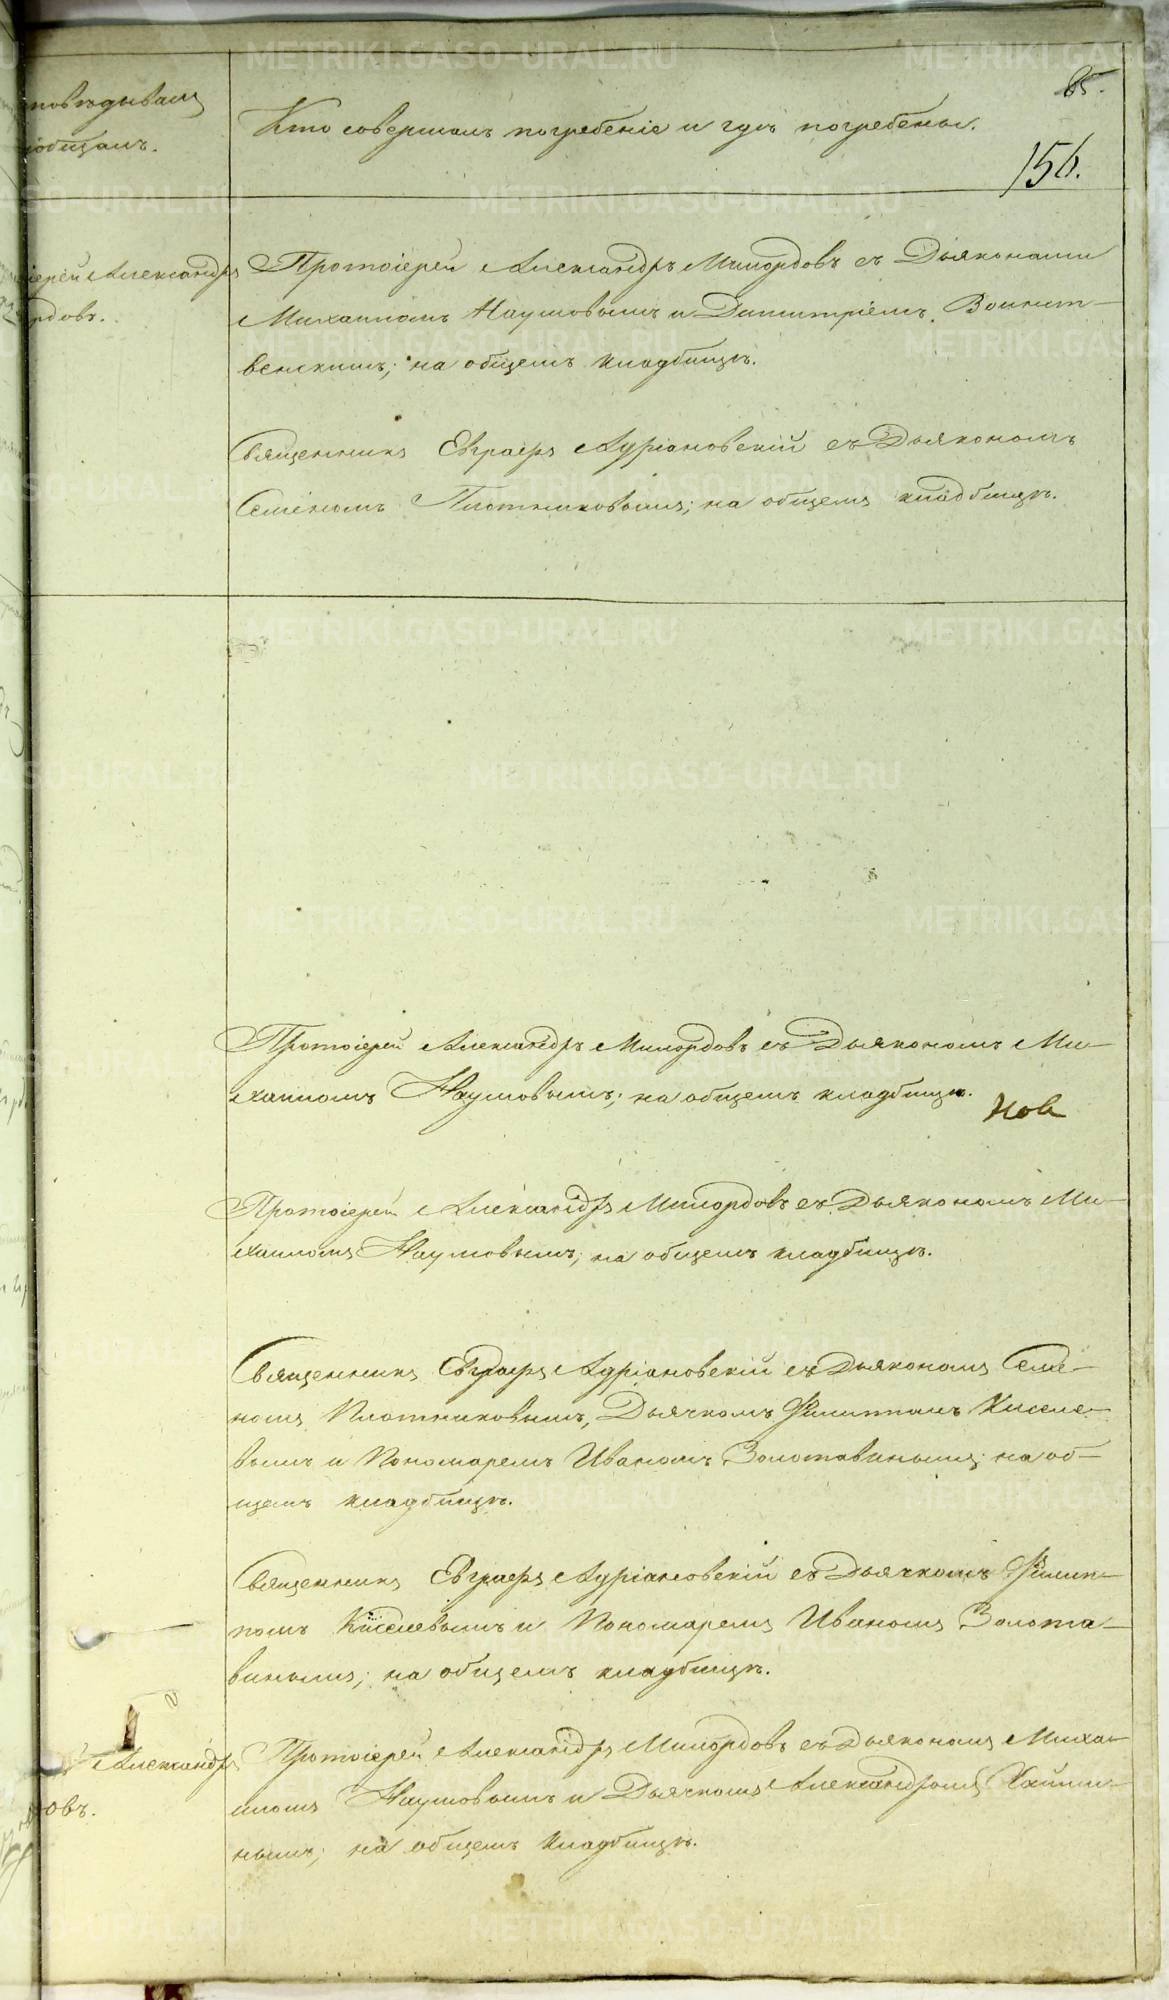 85.
Кто совершалъ погребеніе и гдѣ погребены.
156.
повѣдывалъ
общалъ.
іерей Александръ
рдовъ.
Протоіерей Александръ Милордовъ съ Діяконами
Михаиломъ Наумовымъ и Димитріемъ Воинст-
венскимъ; на общемъ кладбищѣ.
Священникъ Евграфъ Адріановскій съ Діякономъ
Семеномъ Плотниковымъ; на общемъ кладбищѣ.
Протоіерей Александръ Милордовъ съ Діякономъ Ми-
хаиломъ Наумовымъ; на общемъ кладбищѣ.
Нов
Протоіерей Александръ Милордовъ съ Діякономъ Ми-
хаиломъ Наумовымъ; на общемъ кладбищѣ.
Священникъ Евграфъ Адріановскій съ Діякономъ Семе-
номъ Плотниковымъ, Дьячкомъ Филиппомъ Киселе-
вымъ и Пономаремъ Иваномъ Золотавинымъ; на об-
щемъ кладбищѣ.
Священникъ Евграфъ Адріановскій съ Дьячкомъ Филип-
помъ Киселевымъ и Пономаремъ Иваномъ Золота-
винымъ; на общемъ кладбищѣ.
Александръ
овъ.
Протоіерей Александръ Милордовъ съ Діякономъ Миха-
иломъ Наумовымъ и Дьячкомъ Александромъ
нымъ; на общемъ кладбищѣ.
METRIKI.GASO-URAL.RU